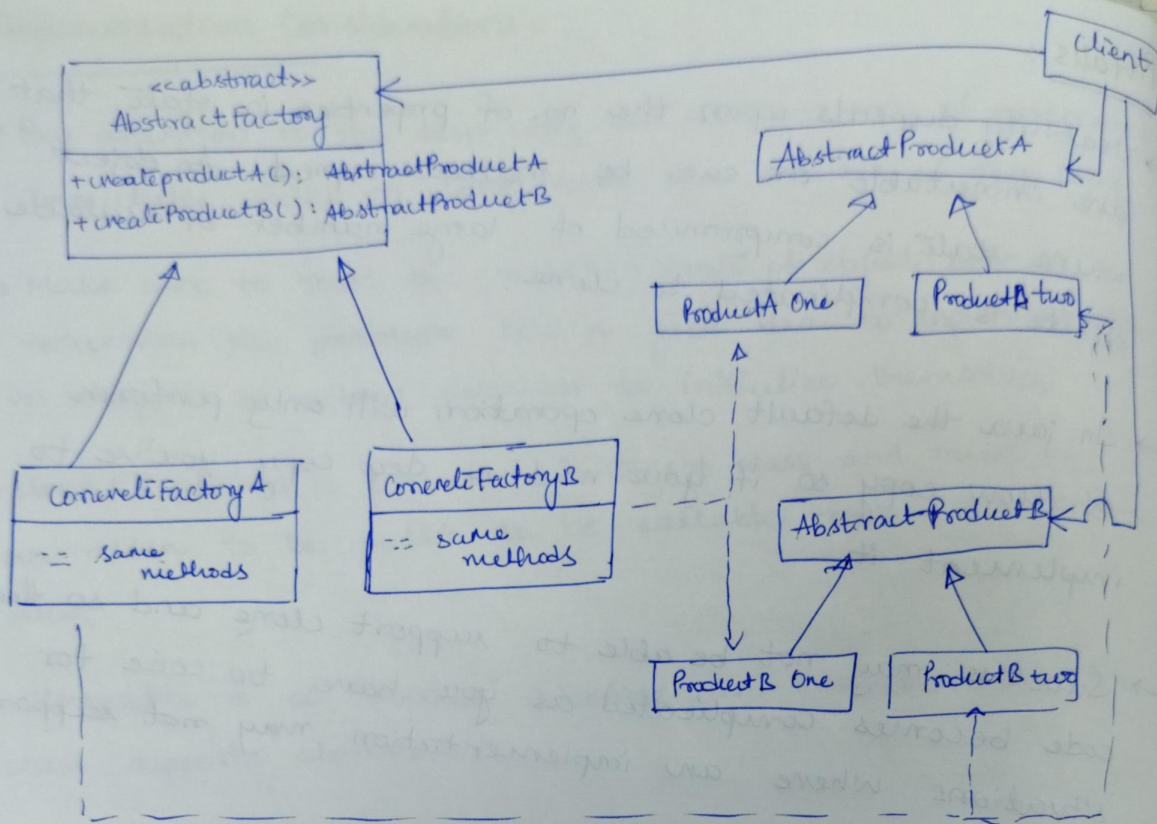 Client
<<abstract>>
AbstractFactory
+createproductA(): AbstractProductA
+createProductB(): AbstractProductB
AbstractProductA
ProductA One
ProductA two
ConcreteFactory A
-- same
methods
ConcreteFactoryB
-- same
methods
AbstractProductB
ProductB One
ProductB two